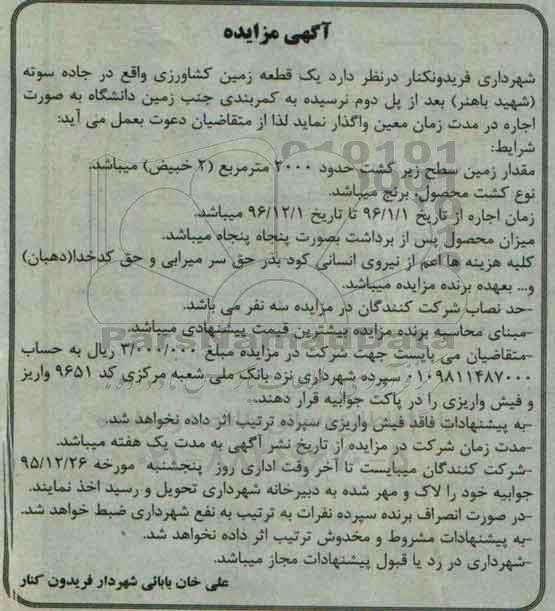 آگهی مزایده
شهرداری فریدونکنار درنظر دارد یک قطعه زمین کشاورزی واقع در جاده سوته
(شهید باهنر) بعد از پل دوم نرسیده به کمربندی جنب زمین دانشگاه به صورت
اجاره در مدت زمان معین واگذار نماید لذا از متقاضیان دعوت بعمل می آید:
شرایط:
مقدار زمین سطح زیر کشت حدود ۲۰۰۰ مترمربع (۲ خبیض) میباشد.
نوع کشت محصول، برنج میباشد.
زمان اجاره از تاریخ ۹۶/۱/۱ تا تاریخ ۹۶/۱۲/۱ میباشد.
میزان محصول پس از برداشت بصورت پنجاه پنجاه میباشد.
کلیه هزینه ها اعم از نیروی انسانی کود بذر حق سر میرابی و حق کدخدا(دهبان)
و... بعهده برنده مزایده میباشد.
-حد نصاب شرکت کنندگان در مزایده سه نفر می باشد.
-مبنای محاسبه برنده مزایده بیشترین قیمت پیشنهادی میباشد.
ParsNamadData
-متقاضیان می بایست جهت شرکت در مزایده مبلغ ۳/۰۰۰/۰۰۰ ریال به حساب
۰۱۰۹۸۱۱۴۸۷۰۰۰ سپرده شهرداری نزد بانک ملی شعبه مرکزی کد ۹۶۵۱ واریز
و فیش واریزی را در پاکت جوابیه قرار دهند.
-به پیشنهادات فاقد فیش واریزی سپرده ترتیب اثر داده نخواهد شد.
-مدت زمان شرکت در مزایده از تاریخ نشر آگهی به مدت یک هفته میباشد.
-شرکت کنندگان میبایست تا آخر وقت اداری روز پنجشنبه مورخه ۹۵/۱۲/۲۶
جوابیه خود را لاک و مهر شده به دبیرخانه شهرداری تحویل و رسید اخذ نمایند.
-در صورت انصراف برنده سپرده نفرات به ترتیب به نفع شهرداری ضبط خواهد شد.
-به پیشنهادات مشروط و مخدوش ترتیب اثر داده نخواهد شد.
-شهرداری در رد یا قبول پیشنهادات مجاز میباشد.
علی خان بابائی شهردار فریدون کنار